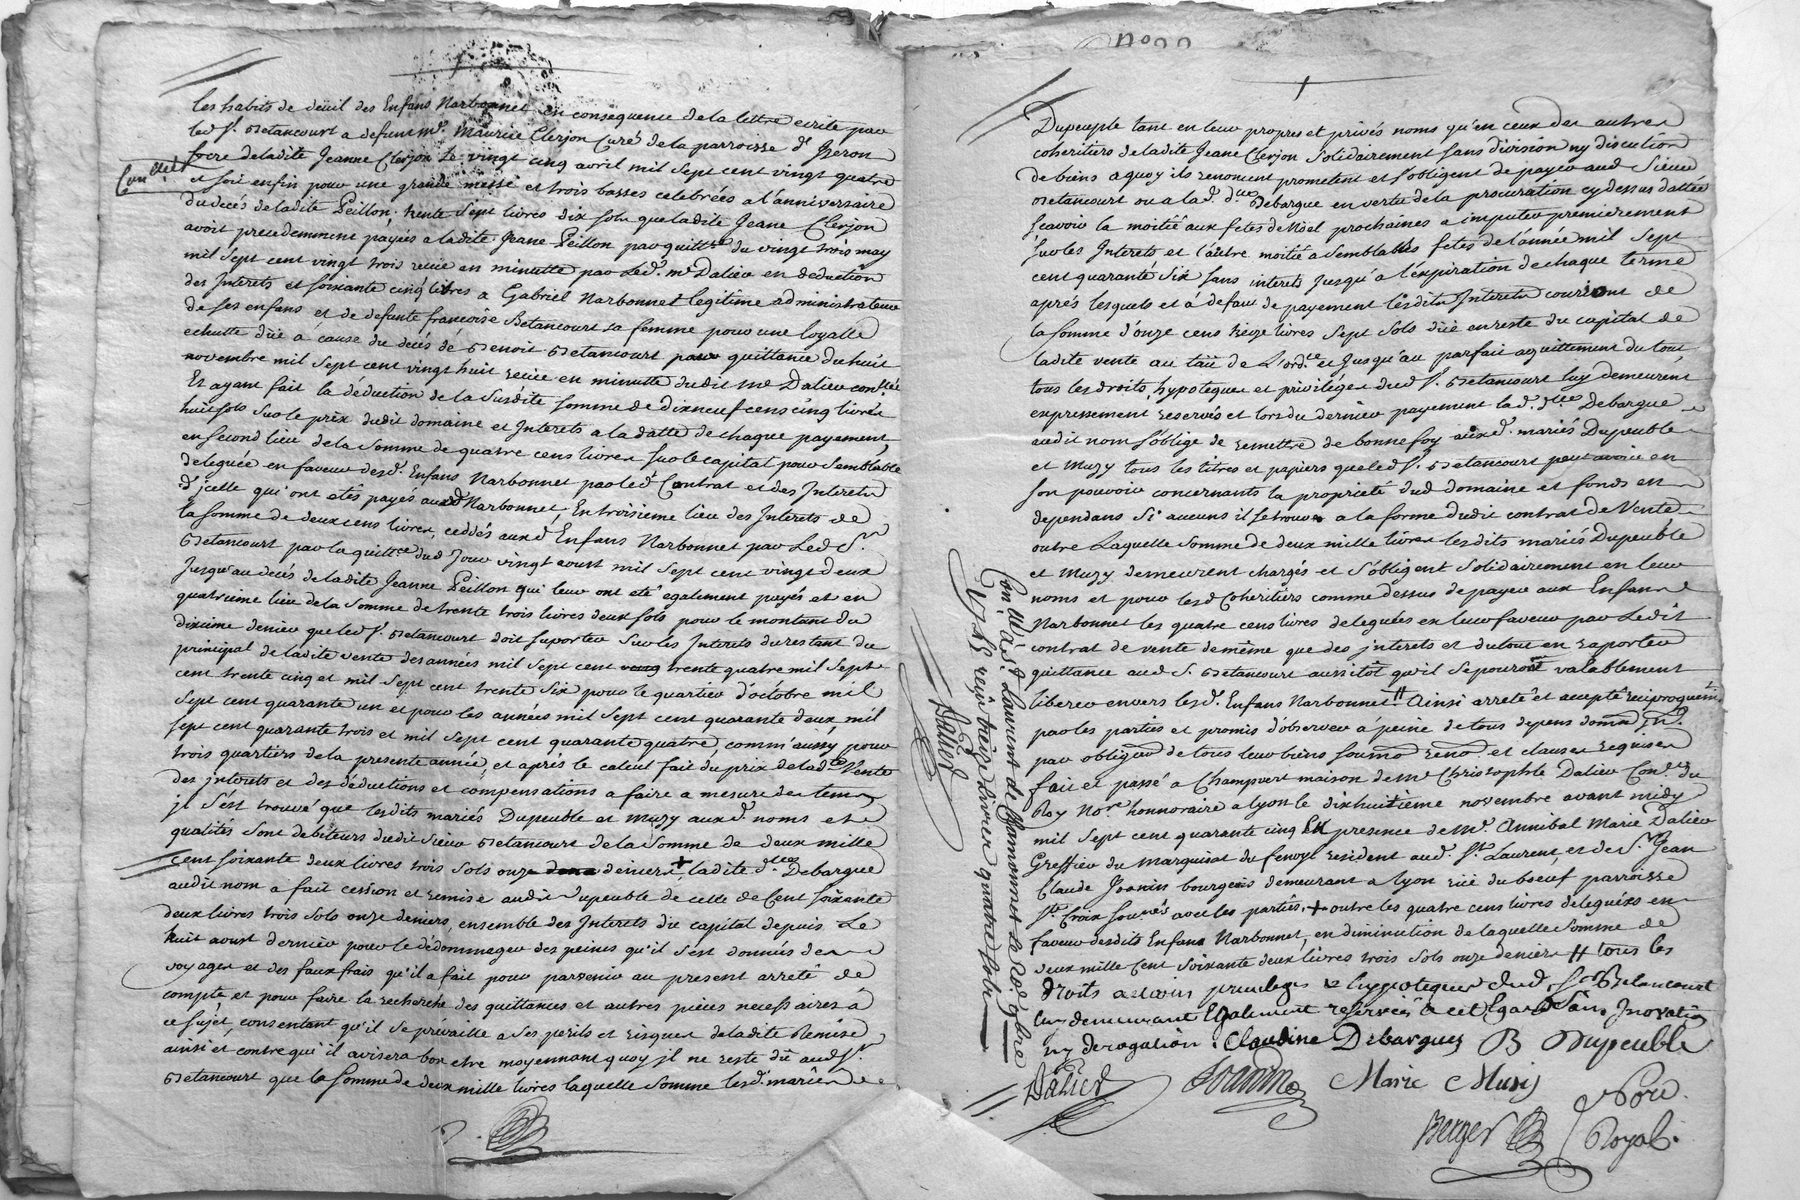 les habits de deüil des Enfans Narbonnet en consequence de la lettre ecrite par
led Sr. Betancourt a defunt mre. Maurice Clerjon Curé de la parroisse d'
frere de ladite Jeanne Clerjon le vingt cinq avril mil sept cent vingt quatre
et soit enfin pour une grande messe et trois basses celebrées a l'anniversaire
du decés de ladite Peillon, trente sept livres dix sols que ladite Jeane Clerjon
avoit precedemment payées a ladite Jeane Peillon par quittce du vingt trois may
mil sept cent vingt trois recüe en minutte par led. me Dalier en deduction
des Interets et soixante cinq livres a Gabriel Narbonnet legitime administrateur
de ses enfans et de defunte francoise Betancourt sa femme pour une loyalle
echutte düe à cause du decés de Benoit Betancourt par quittance du huit
novembre mil sept cent vingt huit recüe en minutte dudit me Dalier
Et ayant fait la déduction de la Susdite somme de dixneuf cens cinq livres
huit sols sur le prix dudit domaine et Interets a la datte de chaque payement,
en second lieu de la somme de quatre cens livres sur le capital pour semblable
deleguée en faveur desd. Enfans Narbonnet par led Contrat et des Interets
d'jcelle qui ont etés payés aud Narbonnet, En troisieme lieu des Interets de
la somme de deux cens livres ceddés auxd Enfans Narbonnet par led Sr.
Betancourt par la quittce dud Jour vingt aoust mil sept cent vingt deux
Jusqu'au decés de ladite Jeanne Peillon qui leur ont eté egalement payés et en
quatrieme lieu de la somme de trente trois livres deux sols pour le montant du
dixieme denier que led Sr. Betancourt doit suporter sur les Interets du restant du
principal de ladite vente des années mil sept cent trente quatre mil sept
cent trente cinq et mil sept cent trente six pour le quartier d'octobre mil
sept cent quarante un et pour les années mil sept cent quarante deux mil
sept cent quarante trois et mil sept cent quarante quatre, comm'aussy pour
trois quartiers de la presente année, et aprés le calcul fait du prix de lad. Vente
des jnterets et des déductions et compensations a faire a mesure des tems
jl s'est trouvé que lesdits mariés Dupeuble et Muzy auxd. noms et
qualités sont debiteurs dudit Sieur Betancourt de la Somme de deux mille
cent soixante deux livres trois sols onze deniers + ladite dlle Debargue
audit nom a fait cession et remise audit Dupeuble de celle de Cent soixante
deux livres trois sols onze deniers, ensemble des Interets du capital depuis le
huit aoust dernier pour le dédommager des peines qu'il s'est données des
voyages et des faux frais qu'il a fait pour parvenir au present arreté de
compte, et pour faire la recherche des quittances et autres pieces necessaires a
ce sujet, consentant qu'il se prévaille a ses perils et risques de ladite Remise
ainsi et contre qui il avisera bon etre moyennant quoy jl ne reste dû aud Sr.
Betancourt que la somme de deux mille livres laquelle somme lesd. mariés
Dupeuple tant en leur propres et privés noms qu'en ceux des autres
coheritiers de ladite Jeane Clerjon solidairement sans division ny discution
de biens a quoy ils renoncent prometent et s'obligent de payer aud Sieur
Betancourt ou a lad. dlle Debargue en vertu de la procuration cy dessus dattée
scavoir la moitié aux fetes de Noel prochaines a imputer premierement
sur les Interets et l'autre moitié a semblables fetes de l'année mil sept
cent quarante six sans interets jusqu'a l'expiration de chaque terme
aprés lesquels et à defaut de payement lesdits Interets courront de
la somme d'onze cens treize livres sept sols düe en reste du capital de
ladite vente au taü de L'ordce et jusqu'au parfait aquittement du tout
tous les droits, hypoteques et priviléges dud Sr. Betancourt luy demeurent
expressement reservés et lors du dernier payement lad. dlle Debargue
audit nom s'oblige de remettre de bonne foy auxd. mariés Dupeuble
et Muzy tous les titres et papiers que led Sr. Betancourt peut avoir en
son pouvoir concernants la proprieté dud domaine et fonds en
dependans si aucuns il se trouve a la forme dudit contrat de Vente
outre Laquelle somme de deux mille livres lesdits mariés Dupeuble
et Muzy demeurent chargés et s'obligent solidairement en leur
noms et pour lesd Coheritiers comme dessus de payer aux Enfans
Narbonnet les quatre cens livres deleguées en leur faveur par Ledit
contrat de vente de méme que des jnterets et du tout en raporter
quittance aud S. Betancourt aussitôt qu'il se pouront valablement
liberer envers lesd. Enfans Narbonnet # Ainsi arreté et accepté reciproquemt
par les parties et promis d'observer à peine de tous depens
par obligaon de tous leur biens et clauses requises
fait et passé a Champvert maison de me Christophle Dalier Coner. du
Roy Nore. honnoraire a Lyon le dixhuitieme novembre avant midy
mil sept cent quarante cinq En presence de Me. Annibal Marie Dalier
Greffier du marquisat du fenoyl resident aud. St. Laurent, et de Sr. Jean
Claude Joanin bourgeois demeurant a Lyon rüe du boeuf parroisse
Ste. Croix avec les parties. + outre les quatre cens livres deleguées en
faveur desdits Enfans Narbonnet, en diminution de laquelle Somme de
deux mille Cent Soixante deux livres trois sols onze deniers # tous les
droits actions privileges & hypoteques dud. Sr Betancourt
luy demeurant Egalement reservés a cet Egard Sans Inovation
ny derogation. Claudine Debargues B Dupeuble
Dalier Joanin Marie Musy
Berger Nore.
Royal.
Dalier